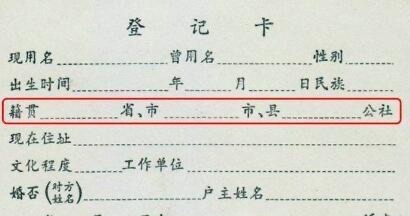 登记卡
现用名 曾用名 性别
出生时间 年 月 日民族
籍贯 省、市 市、县 公社
现在住址
文化程度 工作单位
婚否(对方姓名) 户主姓名